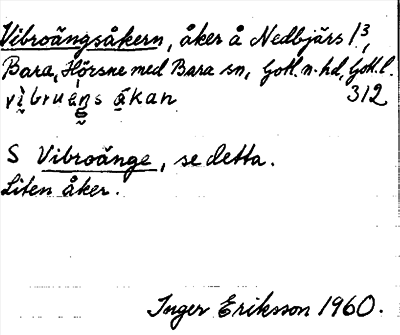 Vibroängsåkern, åker å Nedbjärs 1³,
Bara, Hörsne med Bara sn, Gotl. n. hd, Gotl. l.
vìbruéŋs ákan 312
S Vibroänge, se detta.
Liten åker.
Inger Eriksson 1960.